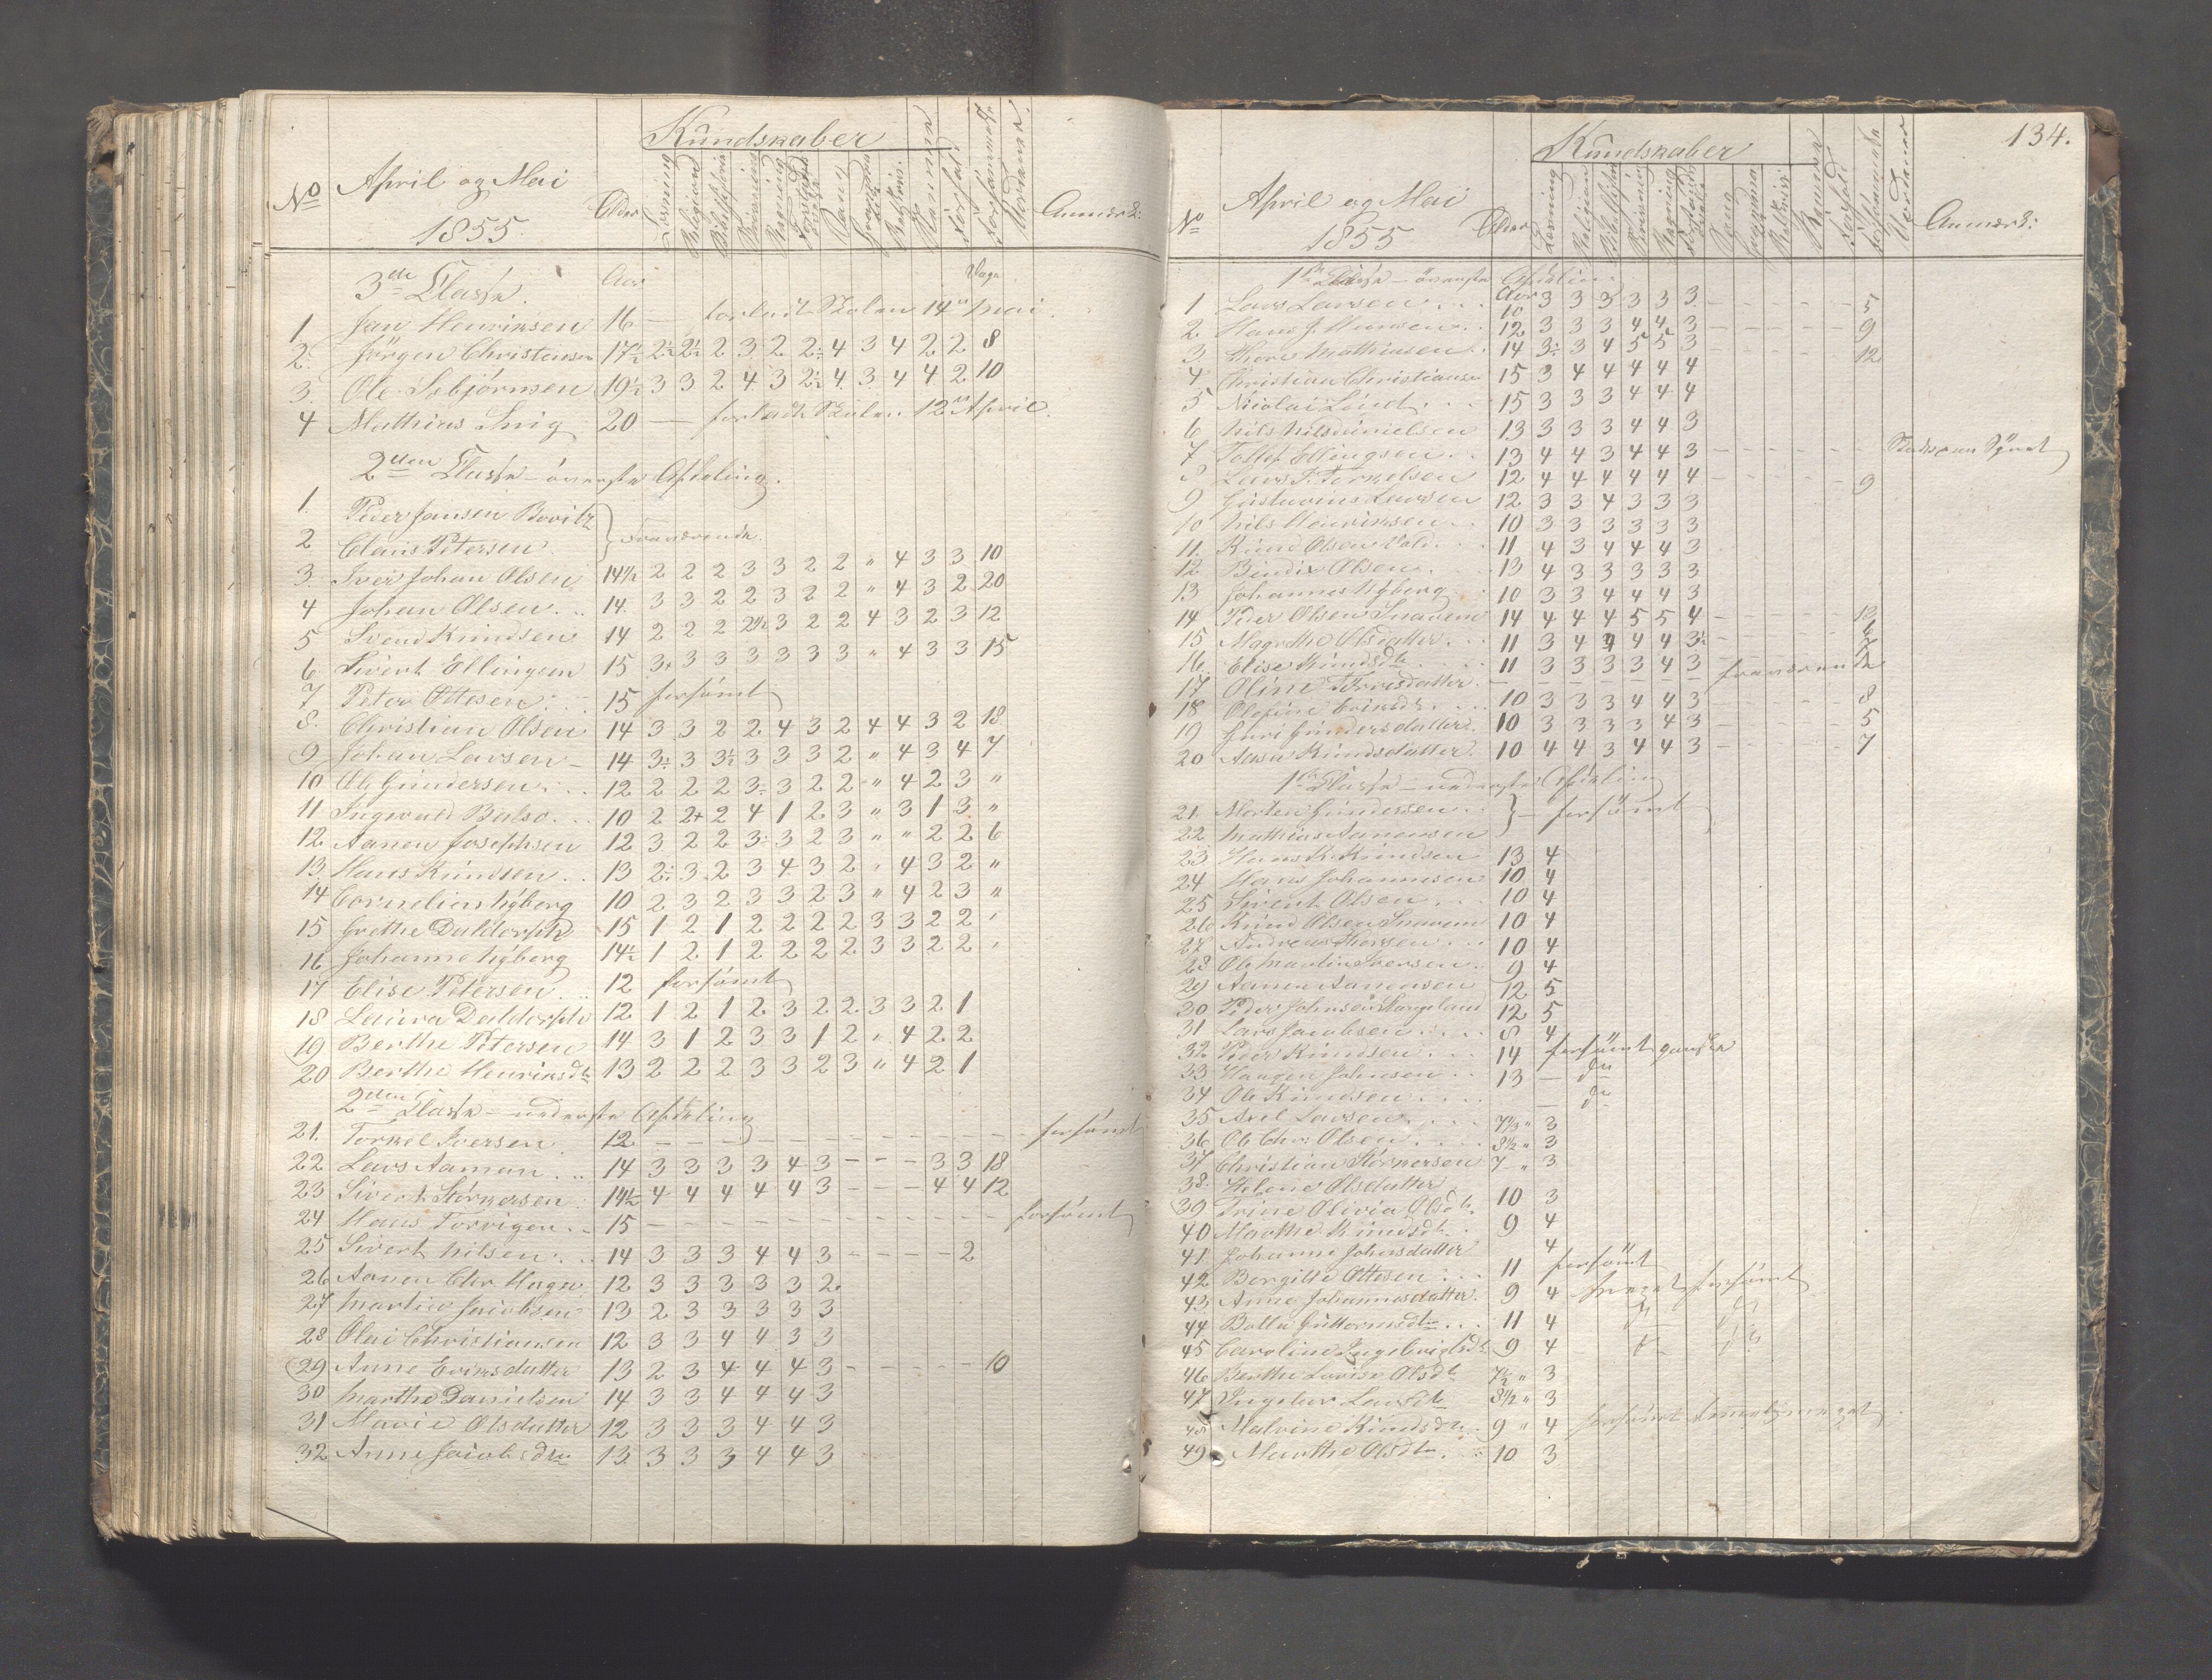 Kundskaber
No April og Mai 1855 Alder Læsning Religion Bibelhistorie Skrivning Regning Forstand Sang Nærværende Forhold Forsømmelse Anmærk:
3die Classe. Aar Dage
1 Jan Henriksen 16 — forladt Skolen 14de Mai.
2. Jörgen Christensen 17½ 2½ 2½ 2 3 2 2½ 4 3 4 2 2 8
3. Ole Sebjörnsen 19½ 3 3 2 4 3 2½ 4 3 4 4 2 10
4 Mathias 20 — forladt Skolen 12te April.
2den Classe – överste Afdeling.
1. Peder Jansen
2 Claus Petersen } Fraværende.
3. Iver Johan Olsen 14½ 2 2 2 3 3 2 2 " 4 3 3 10
4 Johan Olsen 14. 3 3 2 2 3 2 2 " 4 3 2 20
5 Svend Knudsen 14 2 2 2 2½ 3 2 2 4 3 2 3 12
6 Sivert Ellingsen 15 3+ 3 3 3 3 3 3 " 4 3 3 15
7 Peter Ottesen 15 forsömt
8. Christian Olsen 14 3 3 2 2 4 3 2 4 4 3 2 18
9 Johan Larsen – 14 3÷ 3 3½ 3 3 3 2 " 4 3 4 7
10 Ole Gundersen 12 2 2 2 3÷ 3 2 2 " 4 2 3 "
11 Ingwald 10 2 2+ 2 4 1 2 3 " 3 1 3 "
12. Aanen Josephsen 12 3 2 2 3 3 2 3 " " 2 2 6
13. Hans Knudsen 13 2÷ 3 2 3 4 3 2 " 4 3 2 "
14 Cornelius Nyberg 10 2 3 2 3 3 2 3 " 4 2 3 "
15 Grethe Daldorph 15 1 2 1 2 2 2 2 3 3 2 2 "
16 Johanne Nyberg 14½ 1 2 1 2 2 2 2 3 3 2 2 "
17 Elise Petersen 12 forsömt
18 Laura Daldorph 12 1 2 1 2 3 2 2 3 3 2 1
19 Berthe Petersen 14 3 1 2 3 3 1 2 " 4 2 2
20 Berthe Henriksdtr 13 2 2 2 3 3 2 3 " 4 2 1
2den Classe – nederste Afdeling
21. Torkel Iversen 12 – – – – – – – – – – – forsömt
22 Lars Aaman 14 3 3 3 3 4 3 – – – 3 3 18
23 Sivert Störkersen 14½ 4 4 4 4 4 3 – – – 4 4 12
24 Hans Torrigen 15 – – – – – – – – – – – forsömt
25 Sivert Nilsen 14 3 3 3 4 4 3 – – – – 2
26 Aanen Chr. 12 3 3 3 3 3 2
27 Martin Jacobsen 13 2 3 3 3 3 3
28 Olai Christiansen 12 3 3 4 4 3 3
29 Anne Eriksdatter 13 2 3 4 4 4 3 – – – – – 10
30 Marthe Danielsen 14 3 3 4 4 4 3
31 Marie Olsdatter 12 3 3 3 4 4 3
32 Anne Jacobsdtr 13 3 3 3 4 4 3
134.
Kundskaber
No April og Mai 1855 Alder Læsning Religion Bibelhistorie Skrivning Regning Sang Forhold Forsømmelse Anmærk:
1ste Classe – överste Afdeling.
1 Lars Larsen Aar 10 3 3 3 3 3 3 – – – – – 5
2 Hans J. Hansen 12 3 3 3 4 4 3 – – – – – 9
3. Thore Mathiasen 14 3÷ 3 4 5 5 3 – – – – – 12
4 Christian Christiansen 15 3 4 4 4 4 4
5 Nicolai Lund 15 3 3 3 4 4 4
6 Nils Nilsdanielsen 13 3 3 3 4 4 3
7 Tollef Ellingsen 13 4 4 3 4 4 3 – – – – –
8 Lars T. Torkelsen 12 4 4 4 4 4 4 – – – – – 9
9 Gustavius Larsen 12 3 3 4 3 3 3
10 Nils Henriksen 10 3 3 3 3 3 3
11. Knud Olsen Vold 11 4 3 4 4 4 3
12 Bendix Olsen 13 4 3 3 3 3 3
13 Johannes Nyberg 10 3 3 4 4 4 3
14 Peder Olsen Snavem 14 4 4 4 5 5 4 – – – – – 12
15 Magrethe Olsdatter 11 3 4 4 4 4 3½
16. Elise Knudsdtr 11 3 3 3 3 4 3
17 Oline Torrisdatter – – – – – – – fraværende
18 Olefine Eriksdtr 10 3 3 3 4 4 3 – – – – – 8
19 Guri Gundersdatter 10 3 3 3 3 4 3 – – – – – 5
20 Aasa Knudsdatter 10 4 4 3 4 4 3 – – – – – 7
1ste Classe – nederste Afdeling
21. Morten Gundersen
22. Mathias Aanensen } – forsömt
23 Hans K. Knudsen 13 4
24 Hans Johannesen 10 4
25 Sivert Olsen 10 4
26 Knud Olsen Snavem 10 4
27 Andreas Thorsen 10 4
28 Ole Martin Iversen 9 4
29 Aanen Aanensen 12 5
30 Peder Johnsen Stangeland 12 5
31 Lars Jacobsen 8 4
32 Peder Knudsen 14 forsömt ganske
33 Haagen Johnsen 13 — do
34 Ole Knudsen — do
35 Axel Larsen 7½ " 3
36 Ole Chr: Olsen 8½ " 3
37 Christian Störkersen 7 " 3
38. Helene Olsdatter
39 Trine Olivia Olsdtr 10 3
40 Marthe Knudsdtr 9 4
41. Johanne Johnsdatter 4
42 Bergitte Ottesen 11 forsömt
43 Anne Johannesdatter 9 4 meget forsömt
44 Bolla Guttormsdtr 11 4
45 Caroline Ingebrigtsdtr 9 4
46 Berthe Lovise Olsdtr 7½ " 3
47 Ingebor Larsdtr 8½ " 3
48 Malvine Knudsdtr 9 " 4 forsömt
49 Marthe Olsdtr 10 3